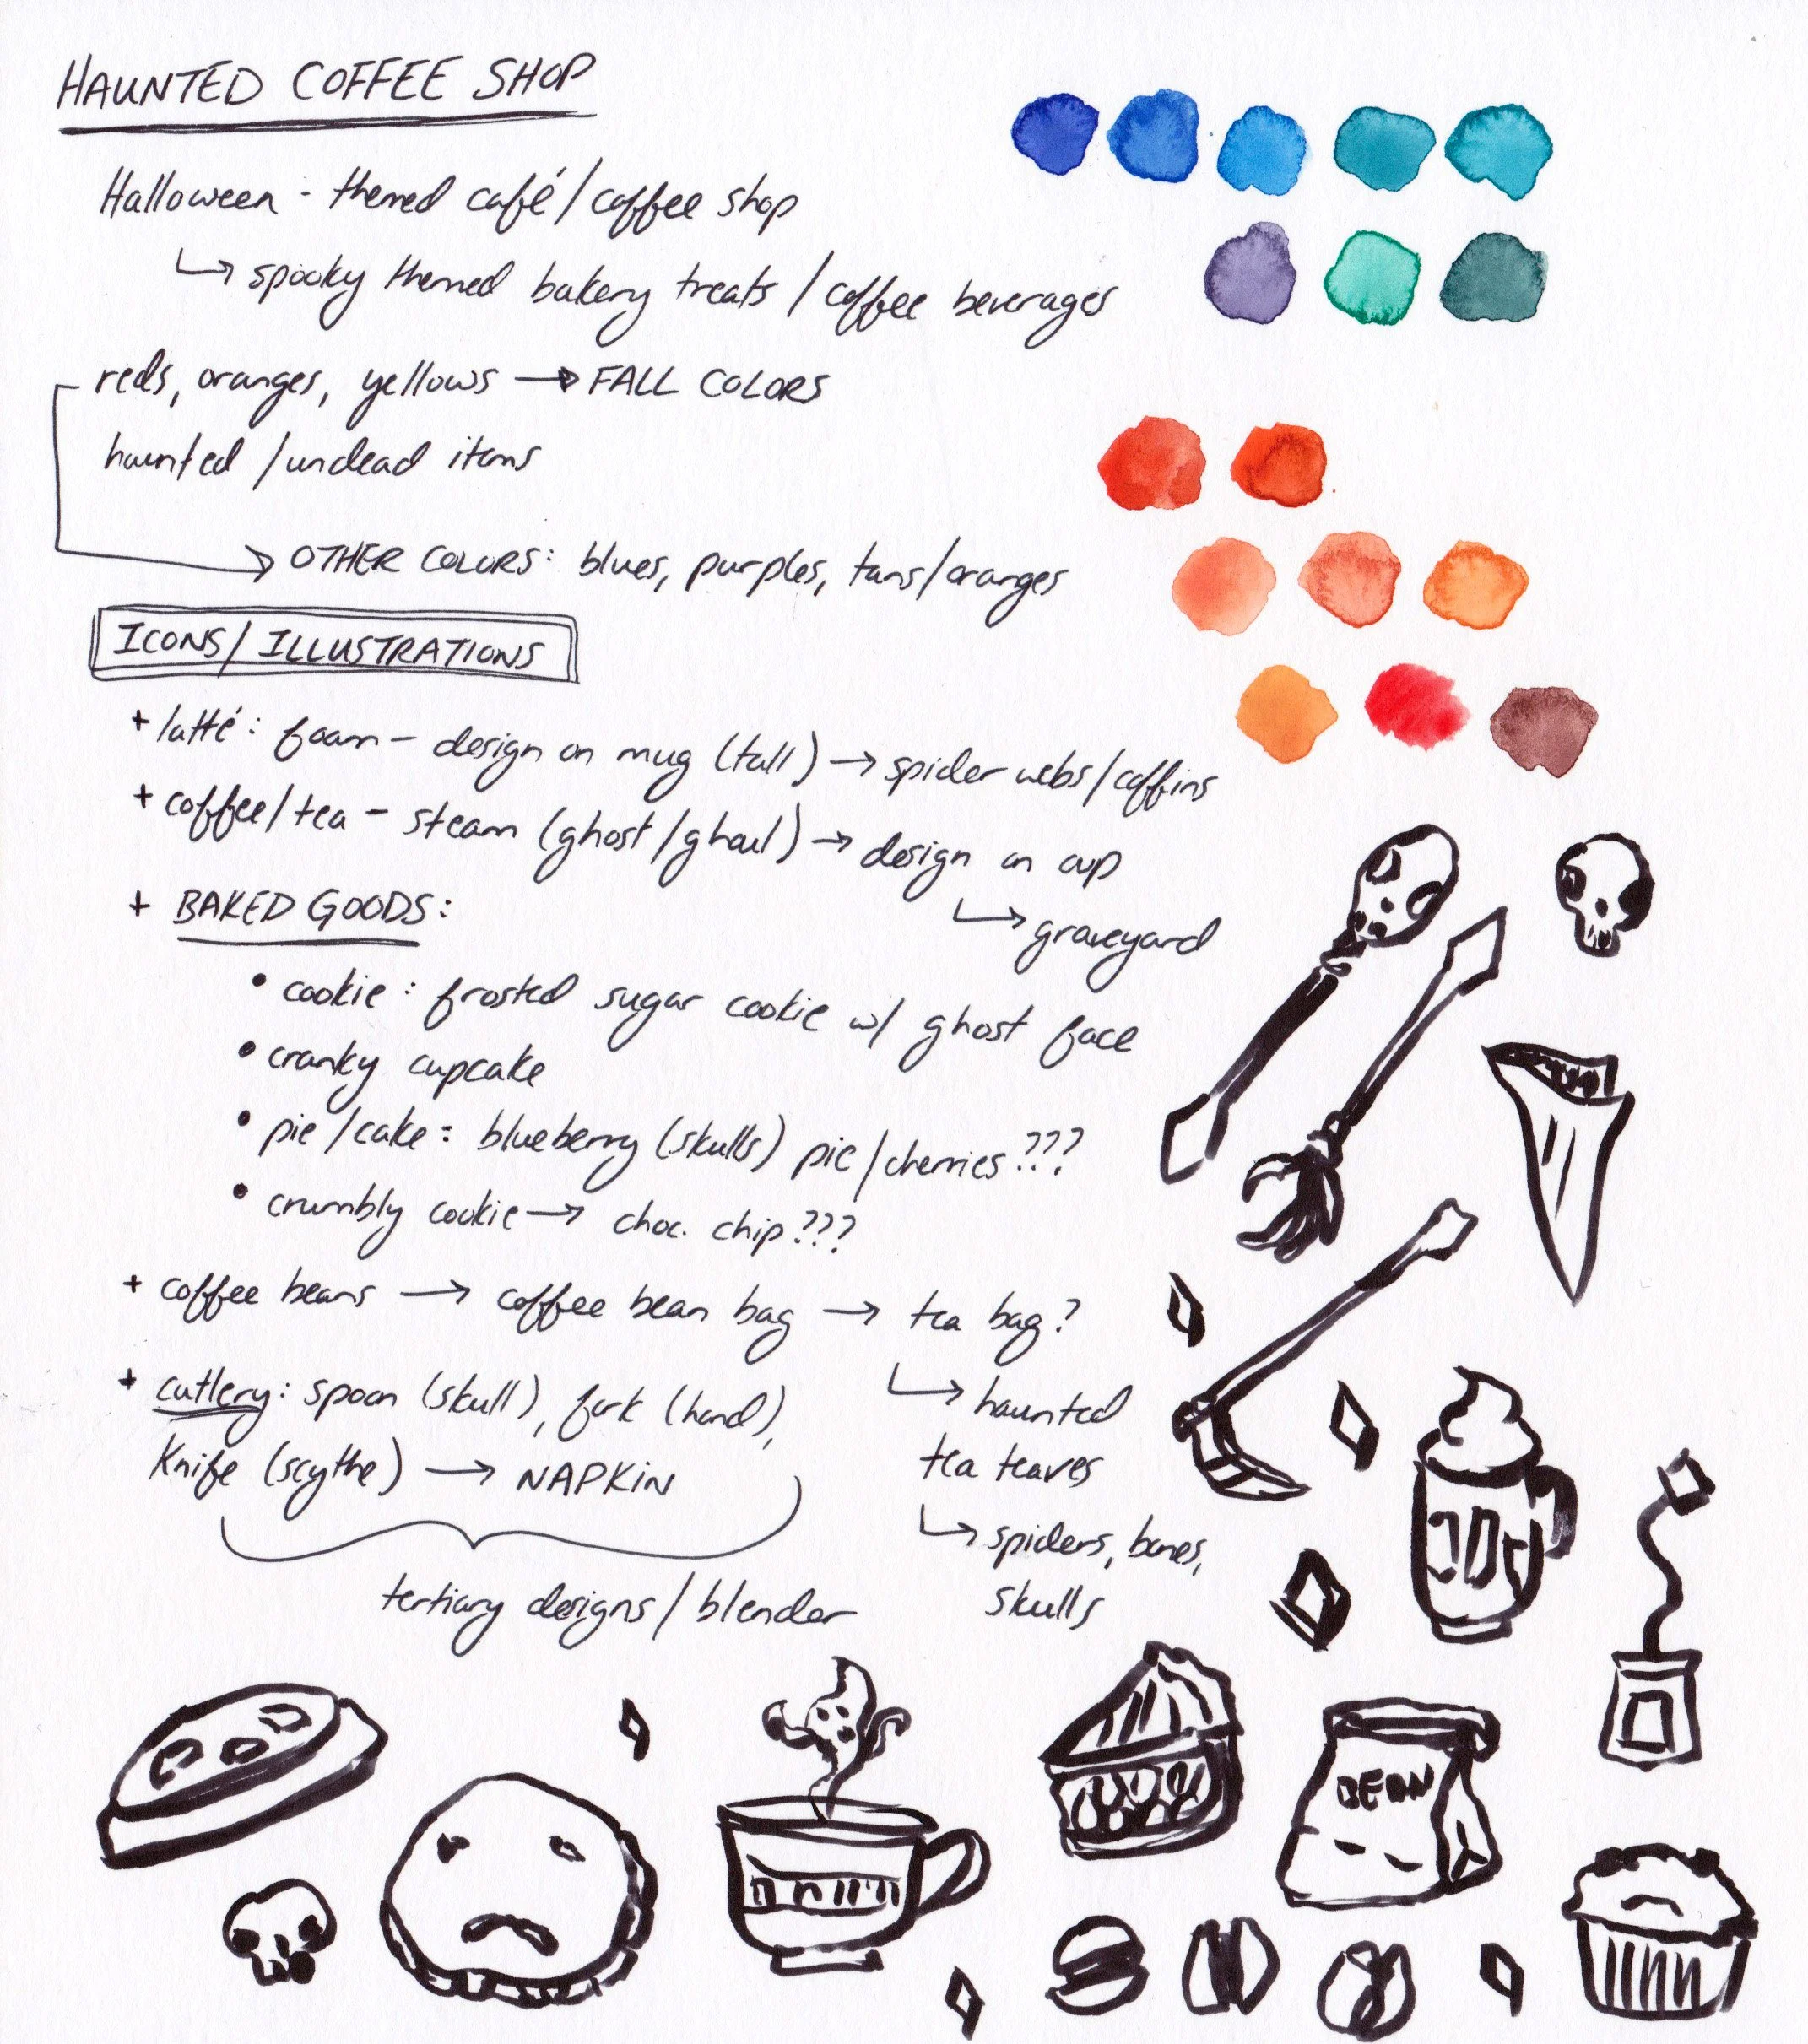 HAUNTED COFFEE SHOP
Halloween - themed café/coffee shop
↳ spooky themed bakery treats / coffee beverages
reds, oranges, yellows → FALL COLORS
haunted /undead items
→ OTHER COLORS: blues, purples, tans/oranges
ICONS/ILLUSTRATIONS
+ latté: foam - design on mug (tall) → spider webs/coffins
+ coffee/tea - steam (ghost/ghoul) → design on cup
↳ graveyard
+ BAKED GOODS:
• cookie: frosted sugar cookie w/ ghost face
• cranky cupcake
• pie/cake: blueberry (skulls) pie/cherries???
• crumbly cookie → choc. chip???
+ coffee beans → coffee bean bag → tea bag?
↳ haunted
tea teaves
↳ spiders, bones,
skulls
+ cutlery: spoon (skull), fork (hand),
knife (scythe) → NAPKIN
tertiary designs/blender
BEAN